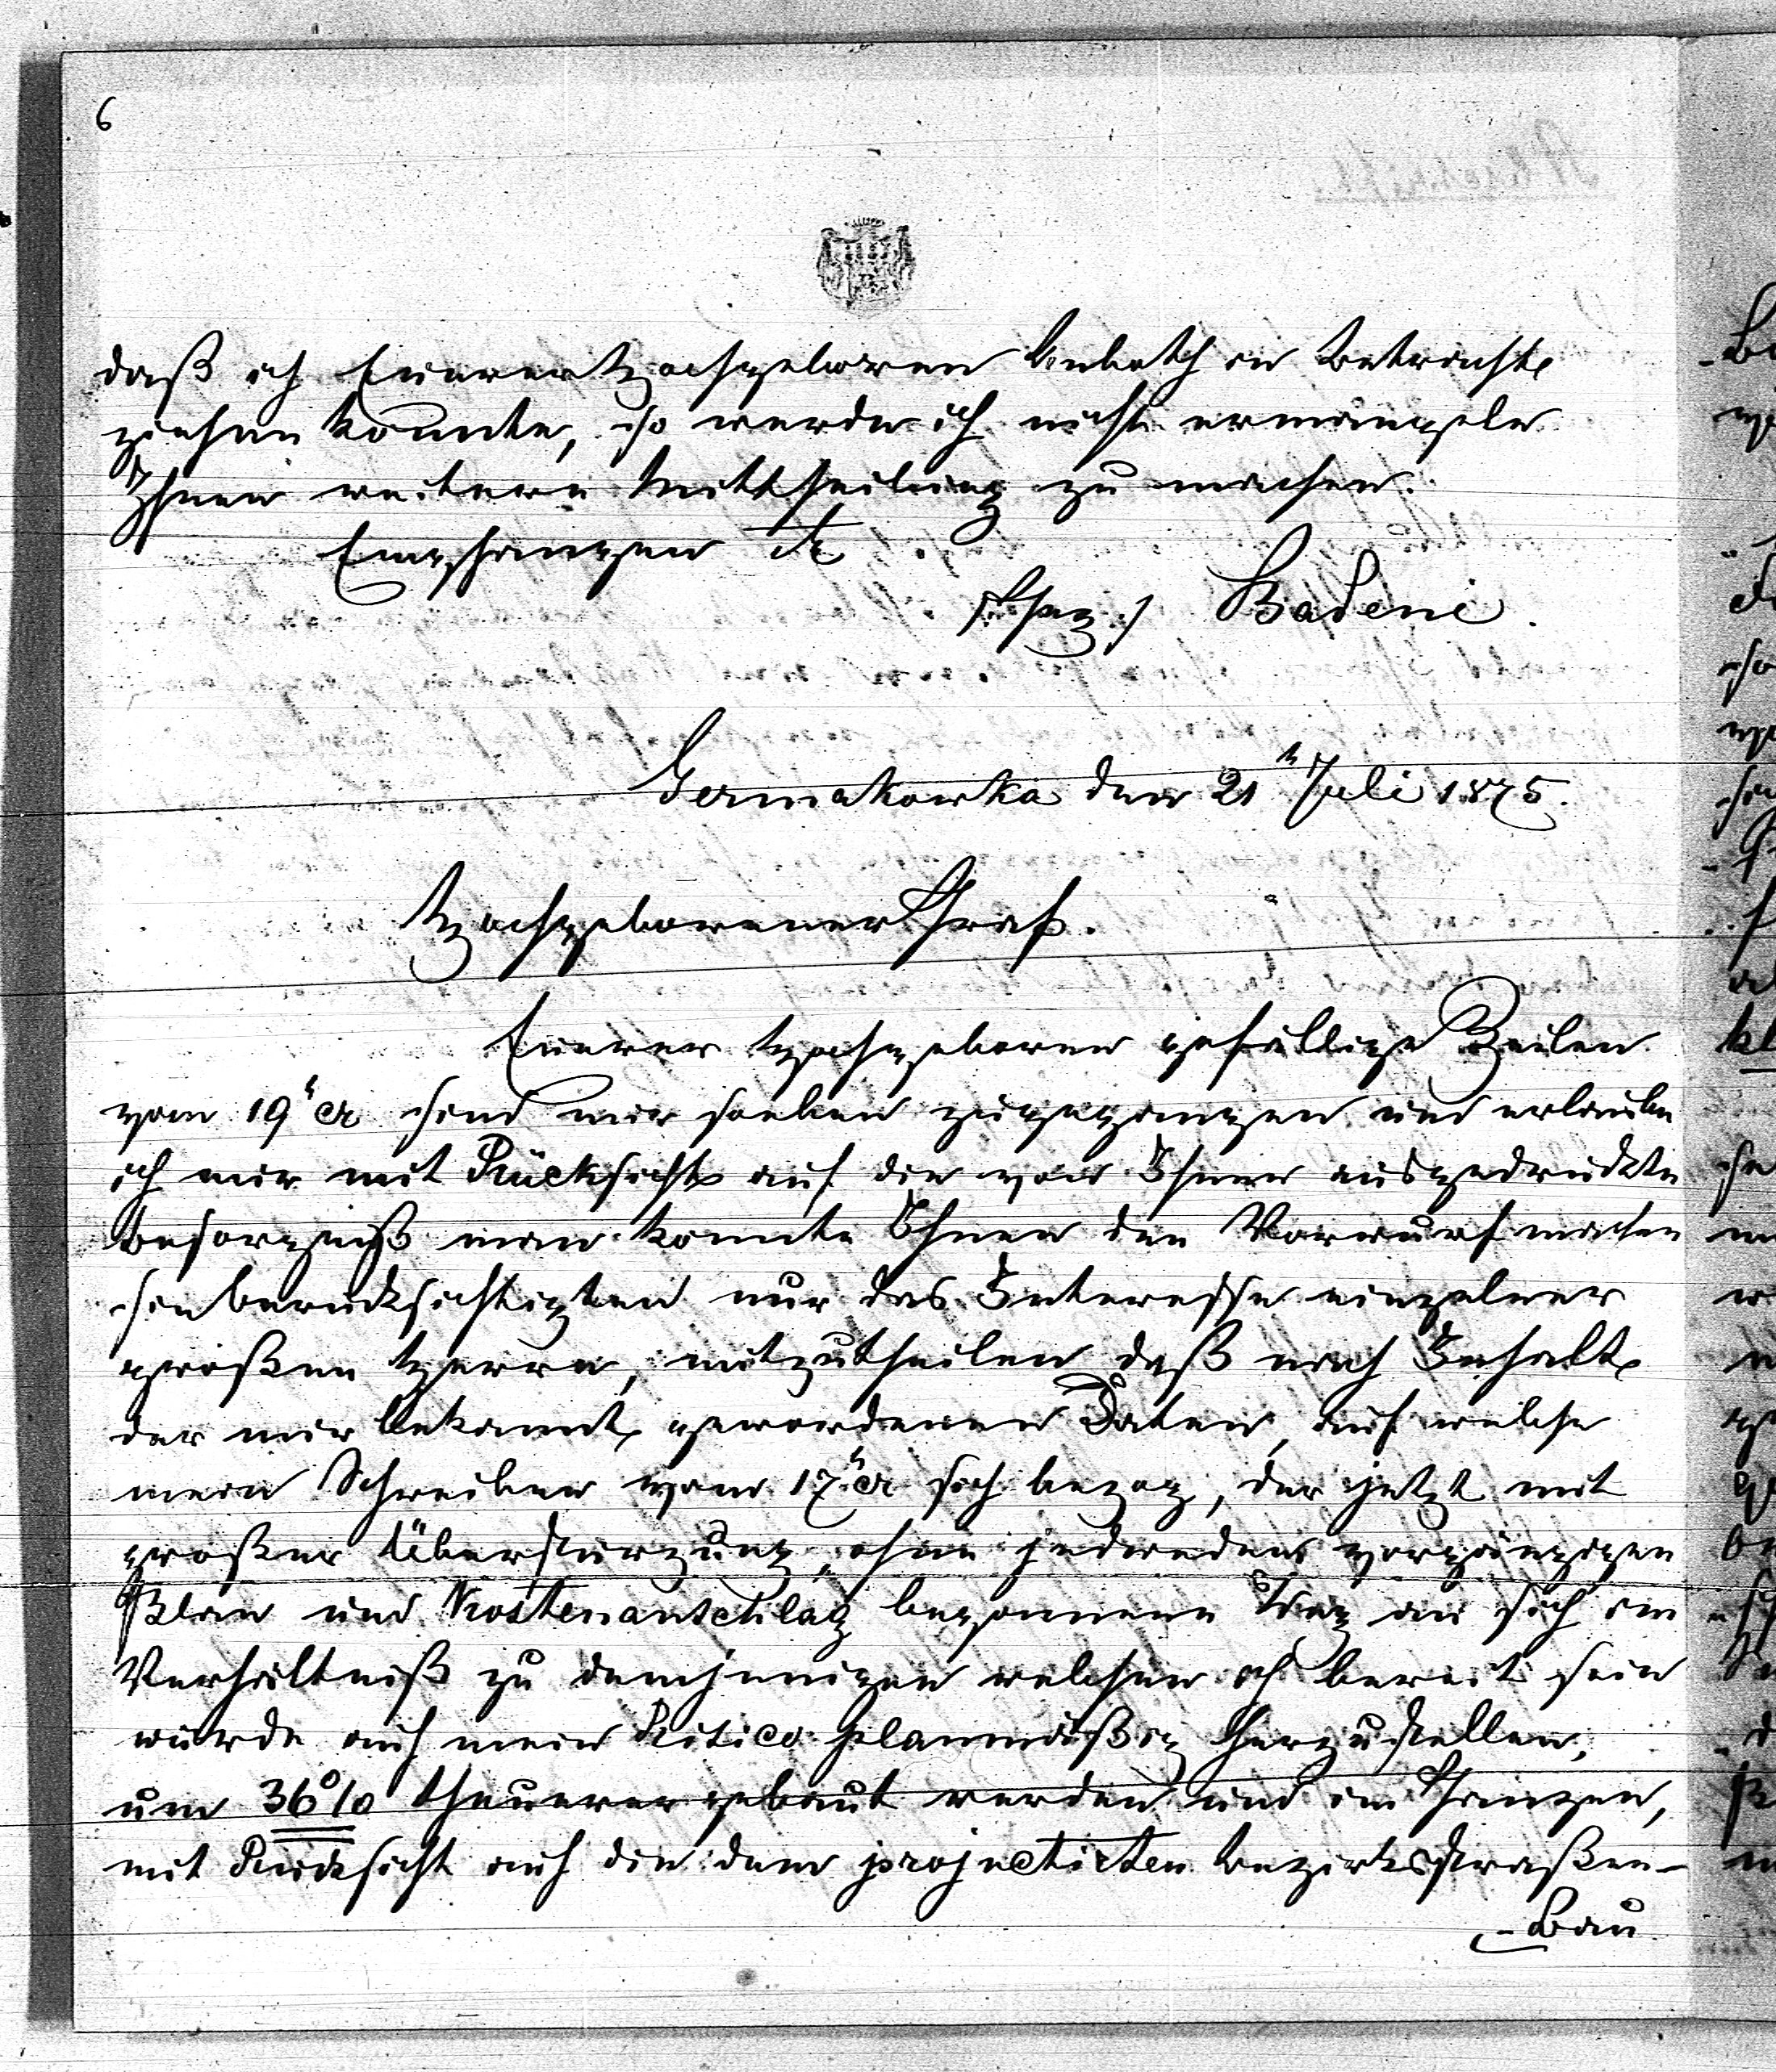 6
daß ich Euerer Hochgeboren Anboth in Betracht
ziehen konnte, so werde ich nicht ermangeln
Ihnen weitere Mittheilung zu machen.
Empfangen etc
/:gez:/ Badeni.
Germakowka den 21t Juli 1875.
Hochgeborener Graf.
Euerer Hochgeboren gefällige Zeilen
vom 19t cr sind mir soeben zugegangen und erlaube
ich mir mit Rücksicht auf die von Ihnen ausgedrückte
Besorgniß man konnte Ihnen den Vorwurf machen
sie berücksichtigten nur das Interesse einzelner
großen Herrn, mitzutheilen daß nach Inhalt
der mir bekannt gewordenen Daten, auf welche
mein Schreiben vom 17t cr sich bezog, der jetzt mit
großer Überstürzung, ohne jedweden vorgängigen
Plan und Kostenanschlag begonnene Weg an sich im
Verhältniß zu demjenigen welchen ich bereit sein
würde auf mein Risico planmäßig herzustellen,
um 36% theuerer gebaut werden und im Ganzen,
mit Rücksicht auf die dem projectirten Bezirksstraßen-
-Bau